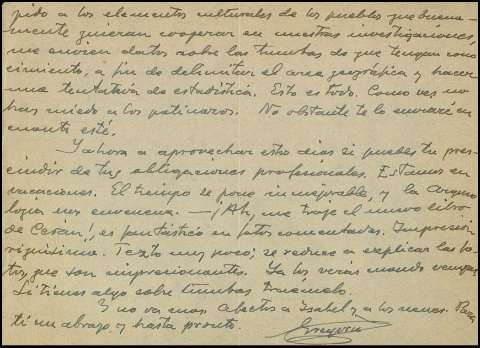 pido a los elementos culturales de los pueblos que buena-
mente quieran cooperar en nuestras investigaciones,
me envien datos sobre las tumbas de que tengan cono
cimiento, a fin de delimitar el area geográfica y hacer
una tentativa de estadística. Esto es todo. Como ves no
has miedo a los patinazos. No obstante te lo enviaré en
cuanto esté.
Y ahora a aprovechar estos dias si puedes tu pres-
cindir de tus obligaciones profesionales. Estamos en
vacaciones. El tiempo se pone inmejorable, y la Arqueo
logia nos envenena. — ¡Ah, me traje el nuevo libro
de Ceran!, es fantástico en fotos comentadas. Impresión
rigisima. Texto muy poco; se reduce a explicar las fo-
tos, que son impresionantes. Ya lo verás cuando vengas.
Si tienes algo sobre tumbas
Y no va mas. Afectos a Isabel y a los nenes. Para
ti un abrazo y hasta pronto.
Gregorio